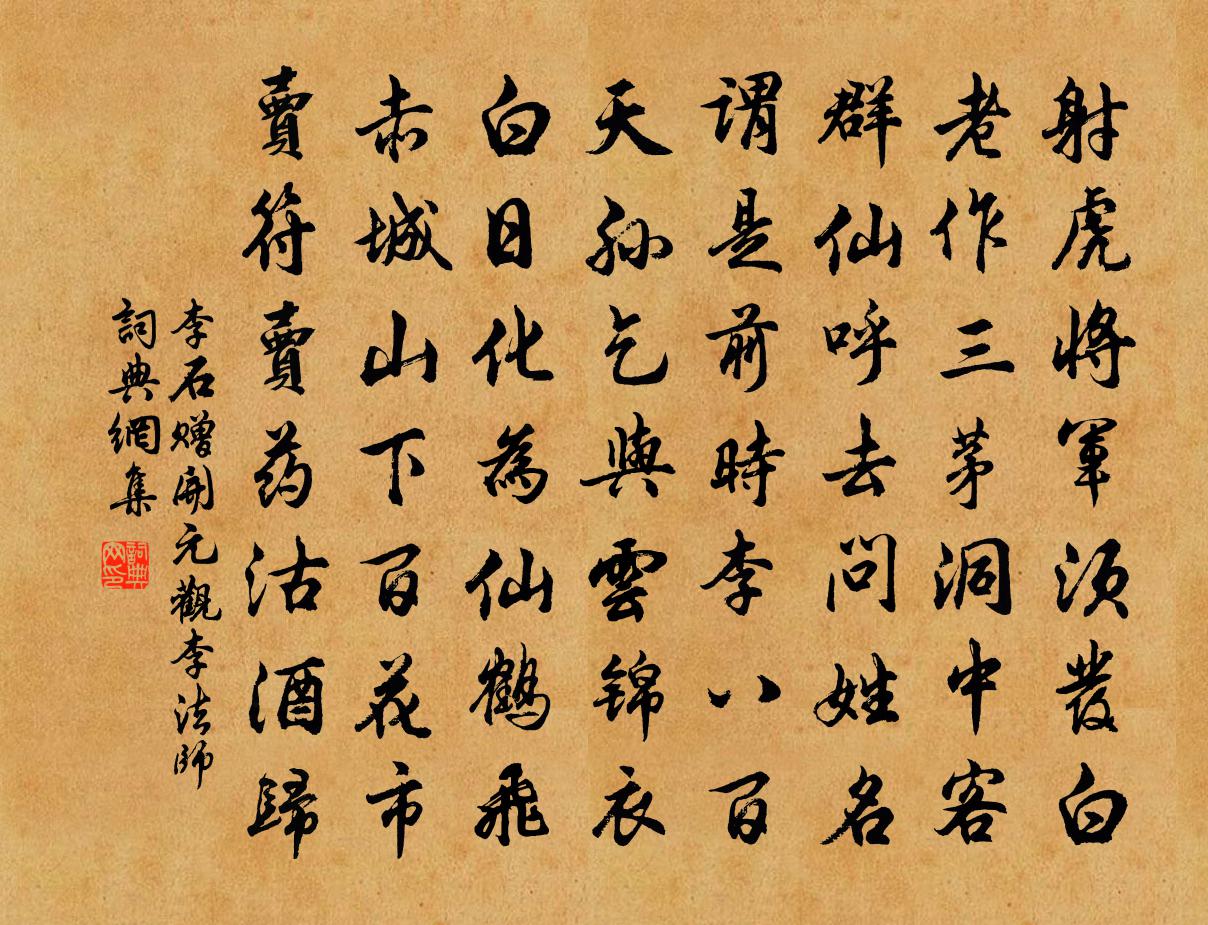 射虎將軍須發白
老作三茅洞中客
群仙呼去問姓名
謂是前時李八百
天孫乞與雲錦衣
白日化為仙鶴飛
赤城山下百花市
賣符賣药沽酒歸
李石赠開元觀李法師
詞典網集
詞典网印